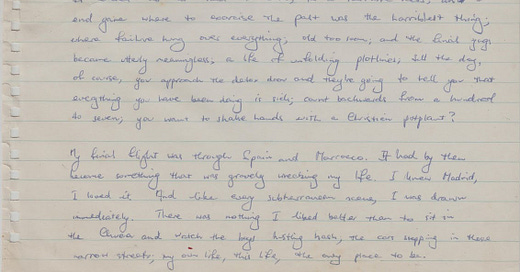 end game where to exorcise the past was the horriblest thing;
where failure hung over everything, old too soon; and the final gigs
became utterly meaningless, a life of unfolding plotlines, till the day,
of course, you approach the detox door and they're going to tell you that
everything you have been doing is sick; count backwards from a hundred
to seven; you want to shake hands with a Christian potplant?
My final flight was through Spain and Marroco. It had by then
become something that was gravely wrecking my life. I knew Madrid,
I loved it. And like every subterranean scene, I was drawn
immediately. There was nothing I liked better than to sit in
the Chueca and watch the boys hustling hash, the cars stopping in these
narrow streets; my own life, this life, the only place to be.